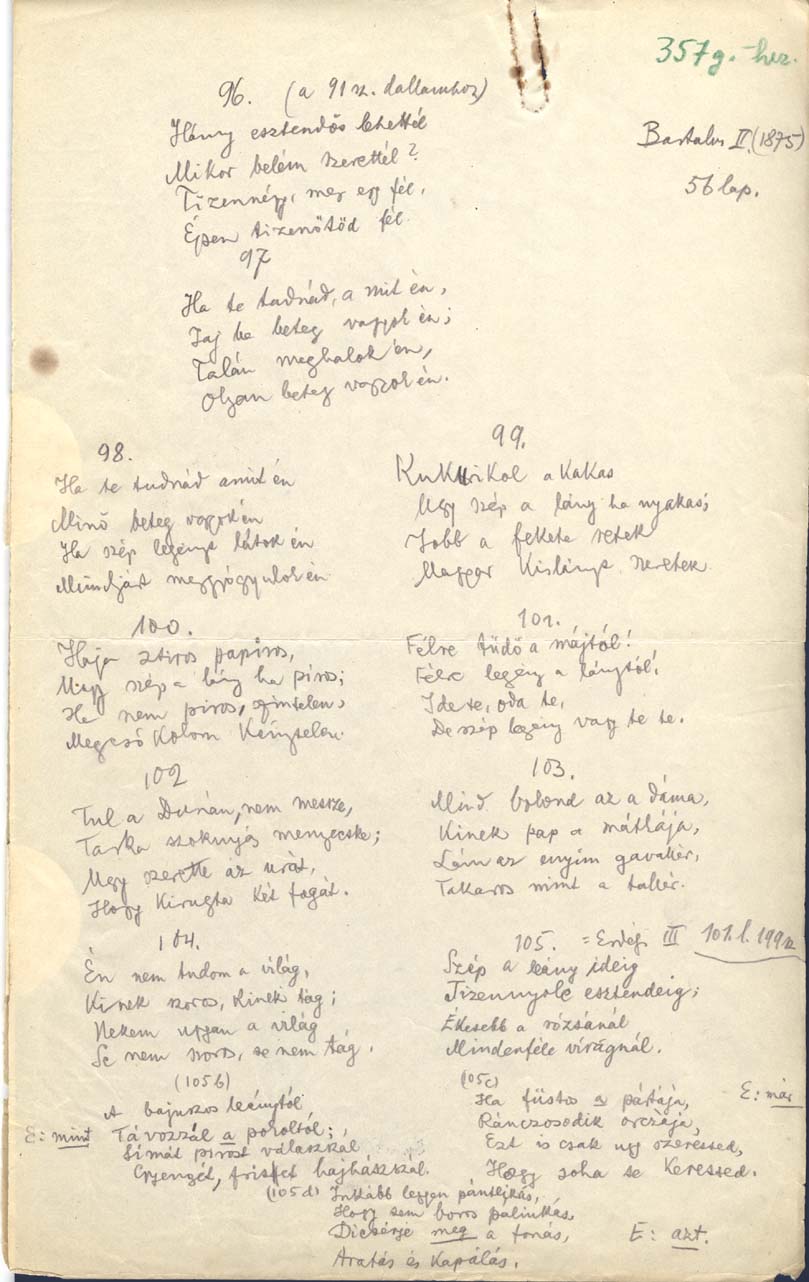 357g.-hez.
96. (a 91 sz. dallamhoz)
Bartalus II. (1875)
56 lap.
Hány esztendős lehettél
Mikor belém szerettél?
Tizennégy, meg egy fél,
Éjpen tizenötöd fél.
97
Ha te tudnád, a mit én,
Jaj be beteg vagyok én;
Talán meghalok én,
Olyan beteg vagyok én.
98.
Ha te tudnád amit én
Minő beteg vagyok én
Ha szép legényt látok én
Mindjárt meggyógyulok én
99.
Kukurikol a kakas
Ugy szép a lány ha nyakas;
Jobb a fekete retek
Magyar kislányt szeretek.
100.
Haja sziros papiros,
Ugy szép a lány ha piros;
Ha nem piros, szintelen,
Megcsókolom kénytelen.
101.
Félre tüdő a májtól!
Félre legény a lánytól!
Ide te, oda te,
De szép legény vagy te te.
102
Tul a Dunán, nem messze,
Tarka szoknyás menyecske;
Ugy szerette az urát,
Hogy kirugta két fogát.
103.
Mind bolond az a dáma,
Kinek pap a mátkája,
Lám az enyim gavallér,
Takaros mint a tallér.
104.
Én nem tudom a világ,
Kinek szoros, kinek tág;
Nekem ugyan a világ
Se nem szoros, se nem tág.
105. = Erdélyi III 101. l. 199 sz.
Szép a leány ideig
Tizennyolc esztendeig;
Ékesebb a rózsánál
Mindenféle virágnál.
(105b)
A bajuszos leánytól
Távozzál a pokoltól;
E: mint
Simát pirost válaszszál
Gyengét, frisset hajhászszál.
(105c)
Ha füstos a pártája,
E: már
Ránczosodik orczája,
Ezt is csak ugy szeressed,
Hogy soha se keressed.
(105d) Inkább legyen pántlikás,
Hogy sem boros palinkás,
Dicsérje meg a fonás,
E: azt.
Aratás és kapálás.